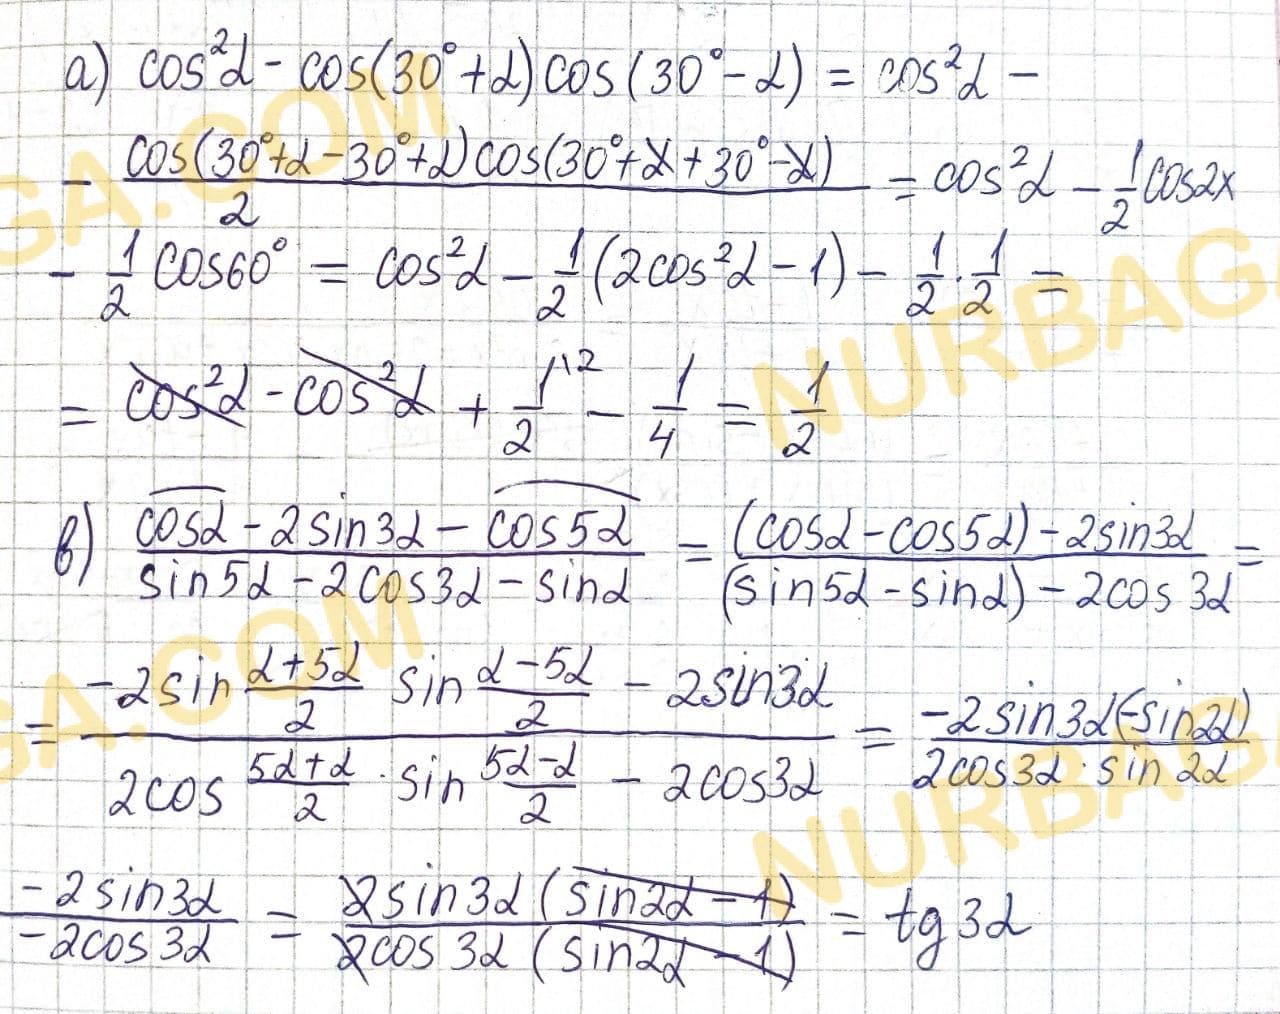 а) cos²α - cos(30°+α)cos(30°-α) = cos²α -
- cos(30°+α-30°+α)cos(30°+α+30°-α) / 2 = cos²α - 1/2 cos2x
- 1/2 cos60° = cos²α - 1/2 (2cos²α - 1) - 1/2 · 1/2 =
= cos²α - cos²α + 1/2 \2 - 1/4 = 1/2
в) cosα - 2sin3α - cos5α / sin5α - 2cos3α - sinα = (cosα - cos5α) - 2sin3α / (sin5α - sinα) - 2cos3α =
= -2sin α+5α/2 sin α-5α/2 - 2sin3α / 2cos 5α+α/2 · sin 5α-α/2 - 2cos3α = -2sin3α(-sin2α) / 2cos3α · sin2α
-2sin3α / -2cos3α = 2sin3α (sin2α - 1) / 2cos3α (sin2α - 1) = tg3α
GA.COM
NURBAGA
GA.COM
NURBAGA